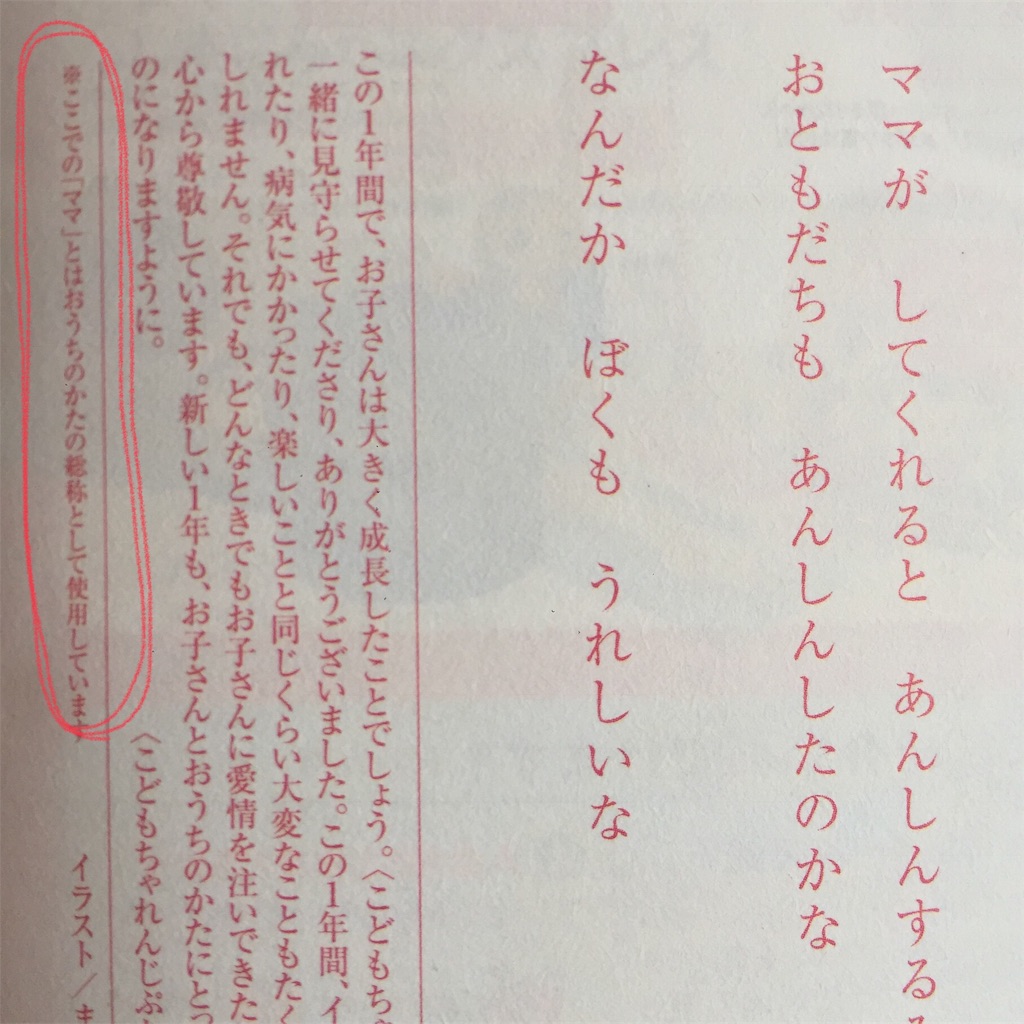 ママが してくれると あんしんする
おともだちも あんしんしたのかな
なんだか ぼくも うれしいな
この1年間で、お子さんは大きく成長したことでしょう。〈こどもち
一緒に見守らせてくださり、ありがとうございました。この1年間、イ
れたり、病気にかかったり、楽しいことと同じくらい大変なこともたく
しれません。それでも、どんなときでもお子さんに愛情を注いできた
心から尊敬しています。新しい1年も、お子さんとおうちのかたにとっ
のになりますように。
〈こどもちゃれんじぷ
※ここでの「ママ」とはおうちのかたの総称として使用しています
イラスト／ま